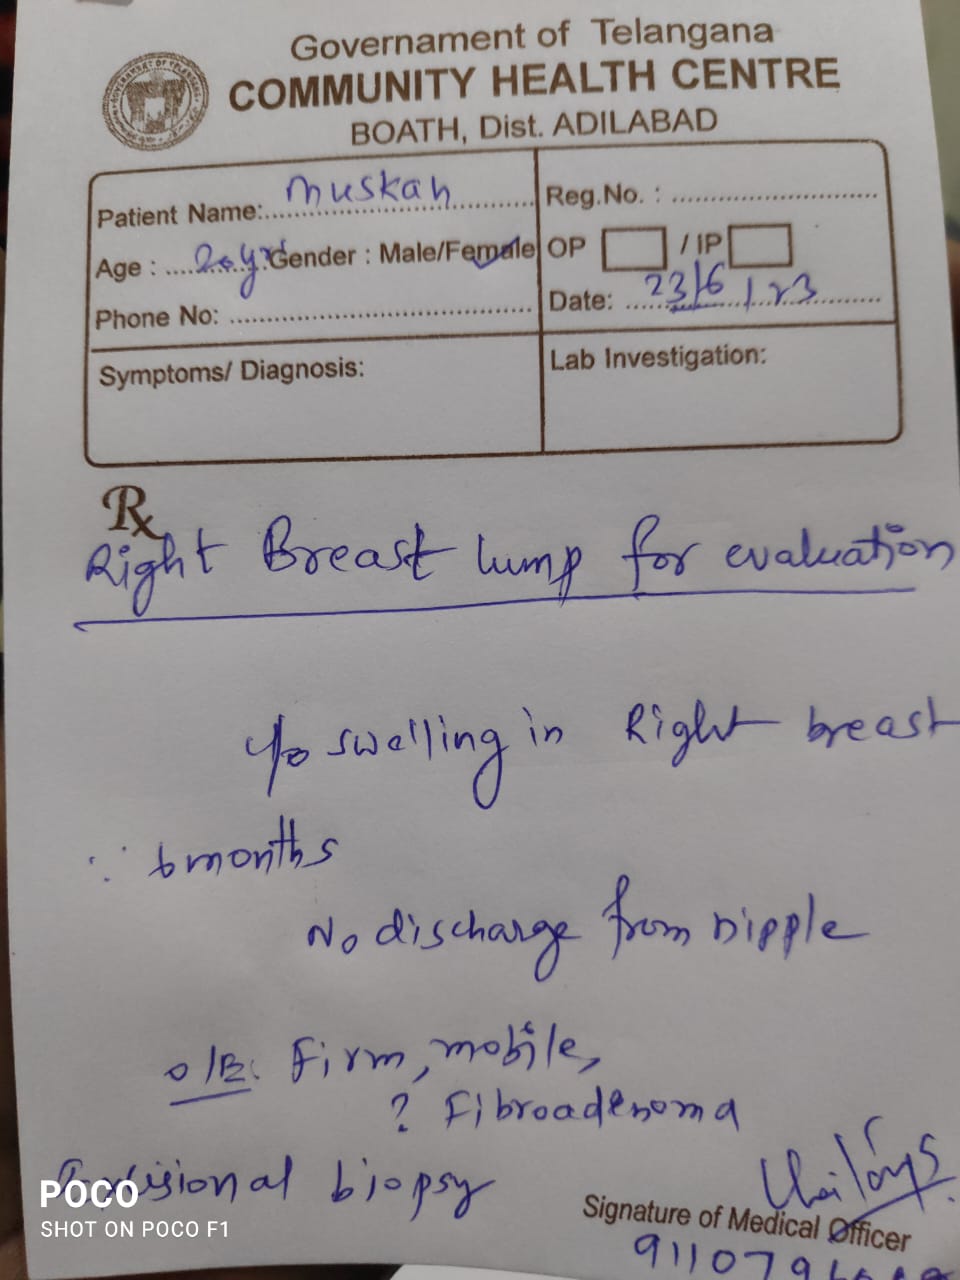 Governament of Telangana
COMMUNITY HEALTH CENTRE
BOATH, Dist. ADILABAD
Patient Name: Muskan
Reg.No. :
Age : 20 yrs Gender : Male/Female
OP / IP
Phone No:
Date: 23/6/23
Symptoms/ Diagnosis:
Lab Investigation:
Rx
Right Breast lump for evaluation
c/o swelling in Right breast
∵ 6 months
No discharge from nipple
O/E: Firm, mobile,
? Fibroadenoma
biopsy
Signature of Medical Officer
POCO
SHOT ON POCO F1